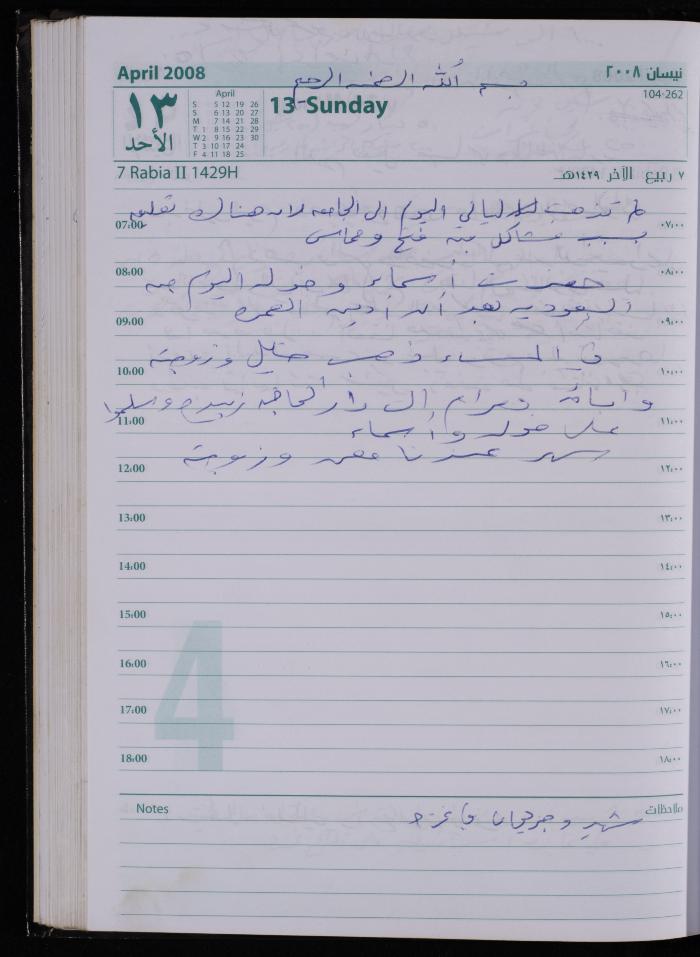 April 2008
بسم الله الرحمن الرحيم
نيسان ٢٠٠٨
١٣
الأحد
April
S 5 12 19 26
S 6 13 20 27
M 7 14 21 28
T 1 8 15 22 29
W 2 9 16 23 30
T 3 10 17 24
F 4 11 18 25
13 Sunday
104-262
7 Rabia II 1429H
٧ ربيع الآخر ١٤٢٩هـ
لم تذهب ليالي اليوم الى الجامعه لان هناك تعليق
07:00 ٠٧:٠٠
بسبب مشاكل بين فتح وحماس
08:00 ٠٨:٠٠
حضرت أسماء وخوله اليوم من
السعوديه بعد أن أدين العمره
09:00 ٠٩:٠٠
في المساء ذهب وزوجته
10:00 ١٠:٠٠
ومرام إلى دار الحاجه زبيده وسلموا
11:00 ١١:٠٠
على خوله وأسماء
سهر عندنا معن وزوجته
12:00 ١٢:٠٠
13:00 ١٣:٠٠
14:00 ١٤:٠٠
15:00 ١٥:٠٠
4
16:00 ١٦:٠٠
17:00 ١٧:٠٠
18:00 ١٨:٠٠
Notes
ملاحظات
شهيد وجريحان في غزه